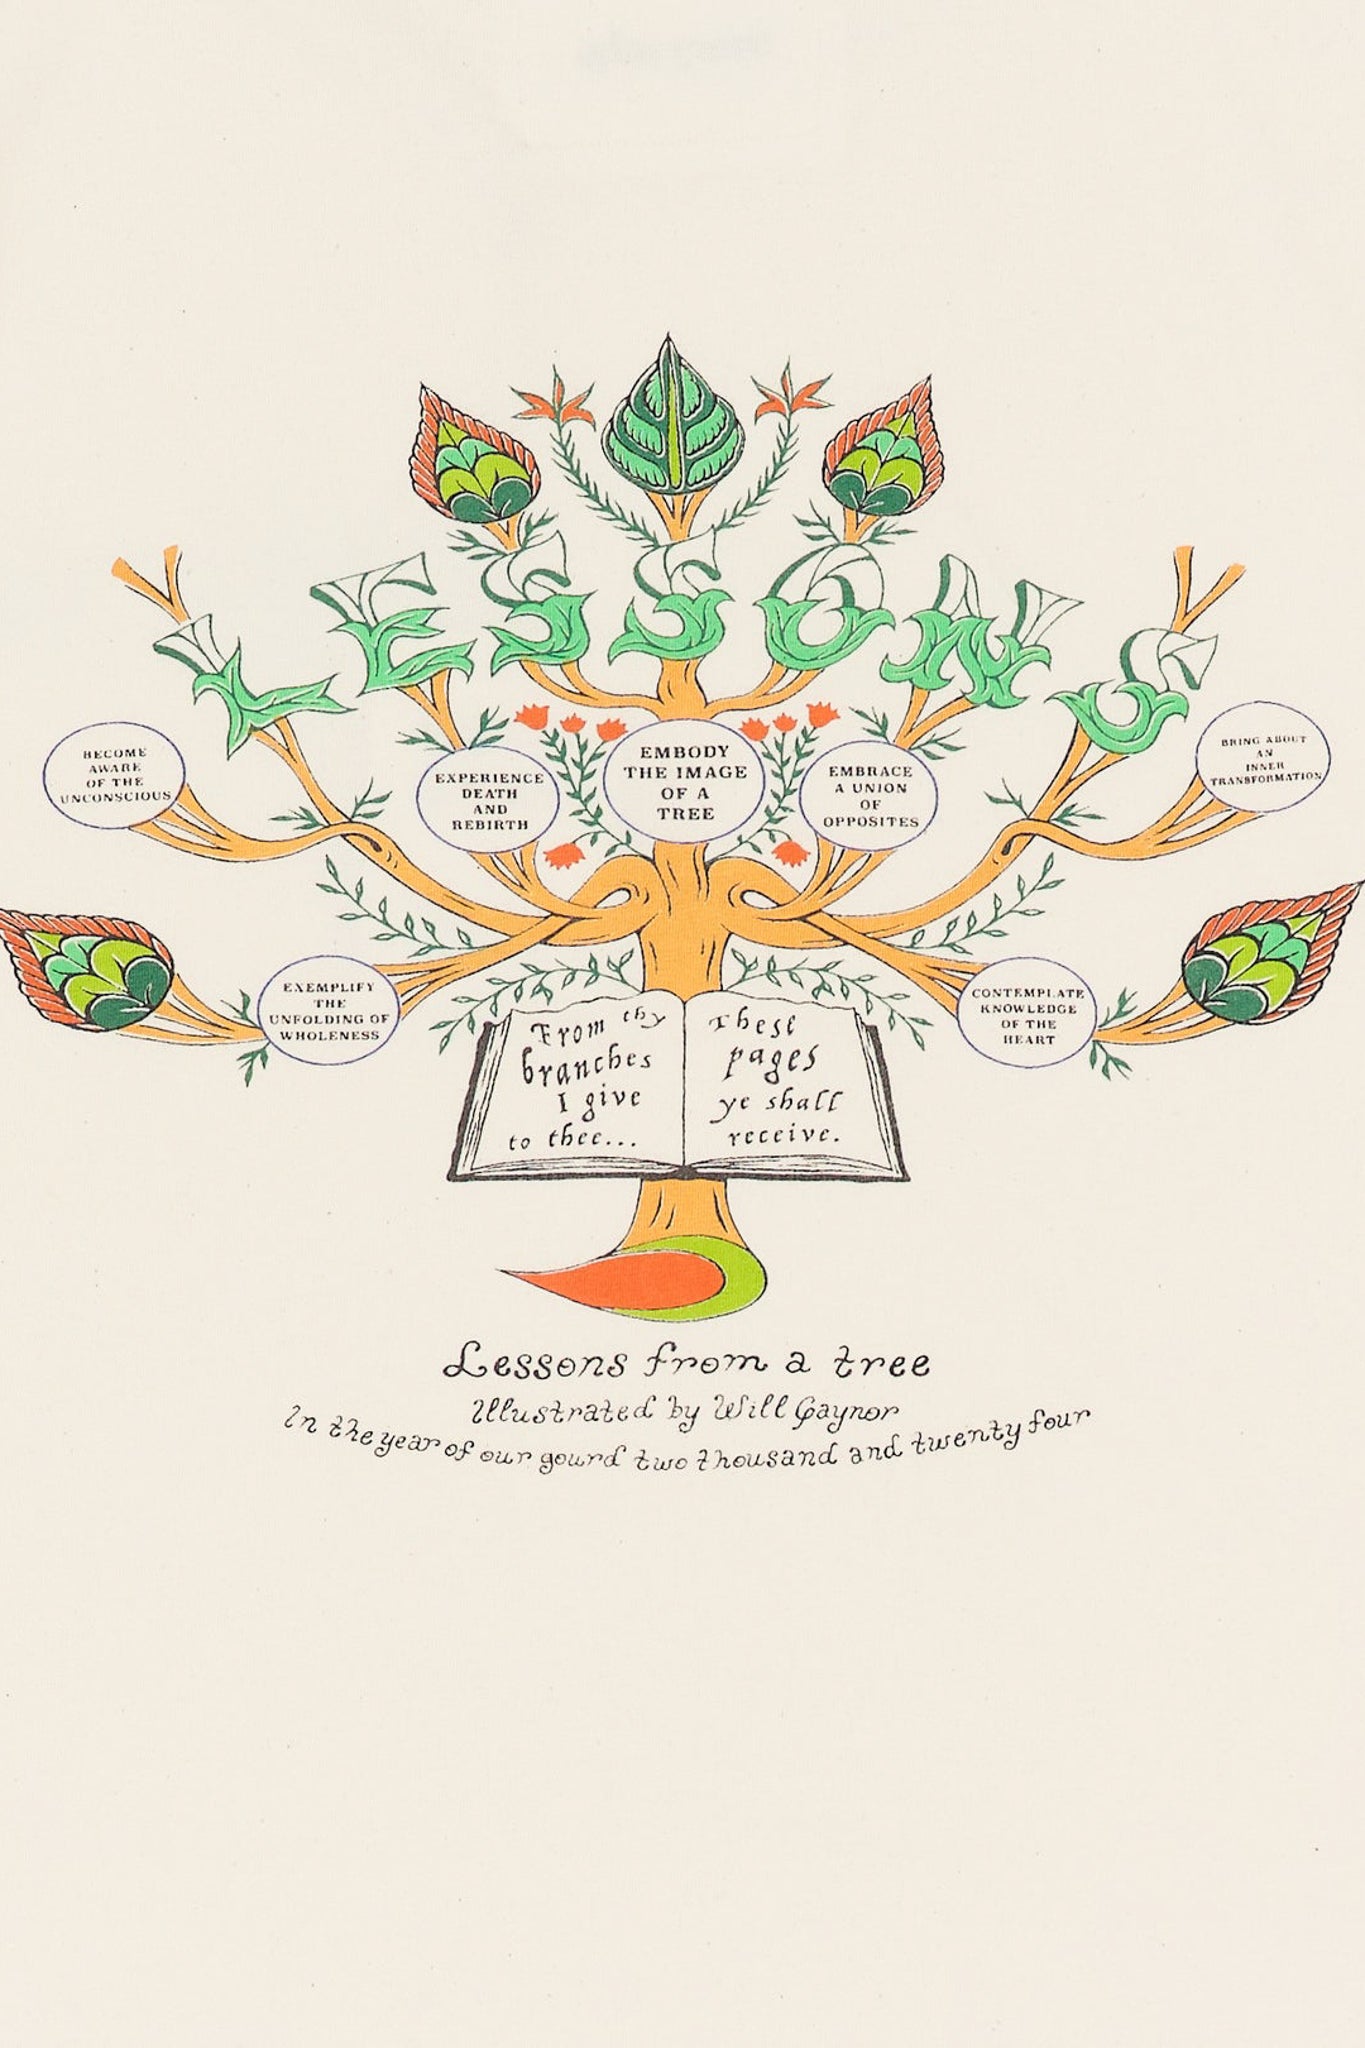 LESSONS
BECOME
AWARE
OF THE
UNCONSCIOUS
EXPERIENCE
DEATH
AND
REBIRTH
EMBODY
THE IMAGE
OF A
TREE
EMBRACE
A UNION
OF
OPPOSITES
BRING ABOUT
AN
INNER
TRANSFORMATION
EXEMPLIFY
THE
UNFOLDING OF
WHOLENESS
CONTEMPLATE
KNOWLEDGE
OF THE
HEART
From thy
branches
I give
to thee...
These
pages
ye shall
receive.
Lessons from a tree
Illustrated by Will Gaynor
In the year of our gourd two thousand and twenty four